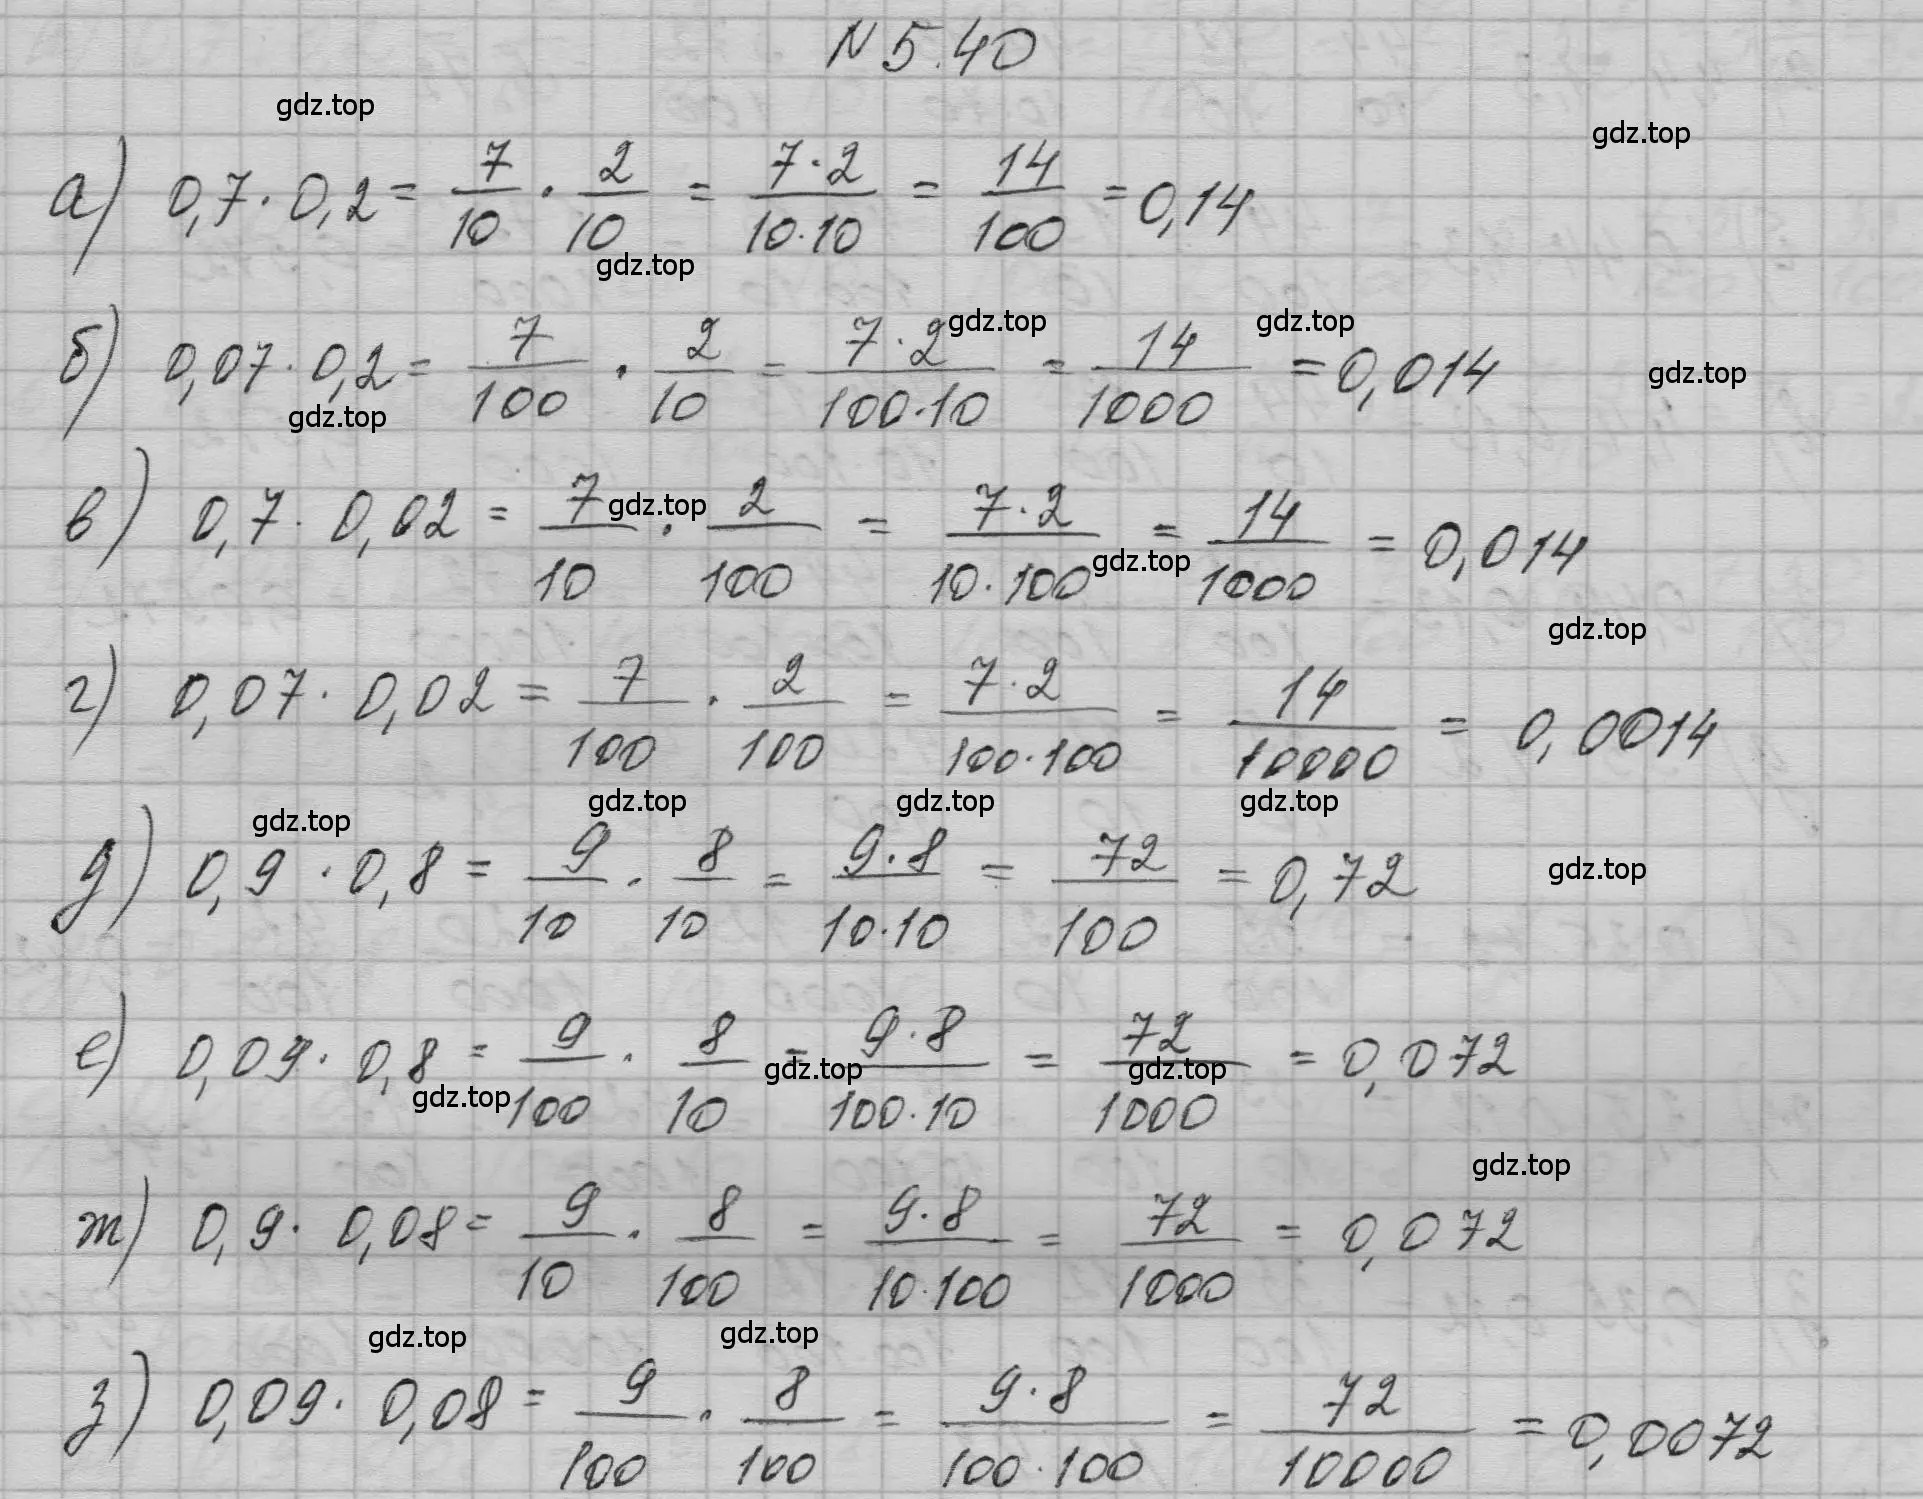 N 5.40
gdz.top
gdz.top
а) 0,7 · 0,2 = 7/10 · 2/10 = 7·2/10·10 = 14/100 = 0,14
gdz.top
gdz.top gdz.top
б) 0,07 · 0,2 = 7/100 · 2/10 = 7·2/100·10 = 14/1000 = 0,014
gdz.top
gdz.top
в) 0,7 · 0,02 = 7/10 · 2/100 = 7·2/10·100 = 14/1000 = 0,014
gdz.top
gdz.top
gdz.top
г) 0,07 · 0,02 = 7/100 · 2/100 = 7·2/100·100 = 14/10000 = 0,0014
gdz.top gdz.top gdz.top gdz.top
д) 0,9 · 0,8 = 9/10 · 8/10 = 9·8/10·10 = 72/100 = 0,72
gdz.top
е) 0,09 · 0,8 = 9/100 · 8/10 = 9·8/100·10 = 72/1000 = 0,072
gdz.top gdz.top gdz.top
gdz.top
ж) 0,9 · 0,08 = 9/10 · 8/100 = 9·8/10·100 = 72/1000 = 0,072
gdz.top gdz.top
з) 0,09 · 0,08 = 9/100 · 8/100 = 9·8/100·100 = 72/10000 = 0,0072